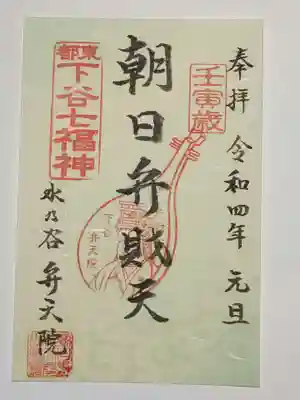 奉拝 令和四年 元旦
壬寅歳
朝日弁財天
弁天院
東都
下谷七福神
水乃谷 弁天院